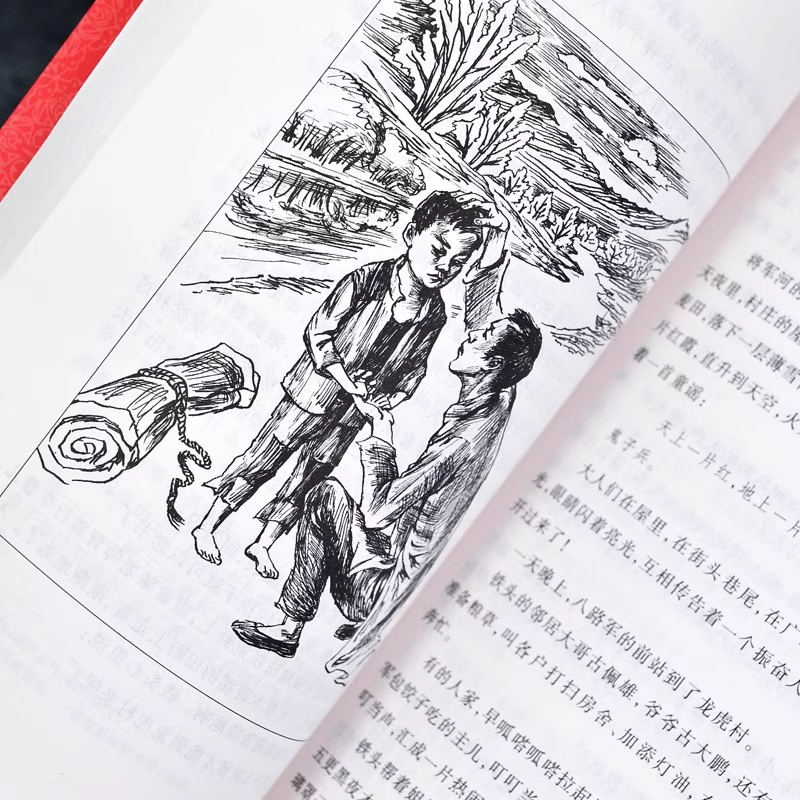 将军河的
天夜里，村庄的屋
麦田，落下一层薄雪
片红霞，直升到天空，火
着一首童谣：
天上一片红，地上一片
鬼子兵。
大人们在屋里，在街头巷尾，在广
光，眼睛闪着亮光，互相传告着一个振奋人
开过来了！
一天晚上，八路军的前站到了龙虎村。
铁头的邻居大哥古佩雄，爷爷古大鹏，还有
准备粮草，叫各户打扫房舍、加添灯油，在
奔忙。
有的人家，早呱嗒呱嗒拉起
军包饺子吃的主儿，叮叮当
叮当声，汇成一片热闹
铁头帮着姐
五更黑夜